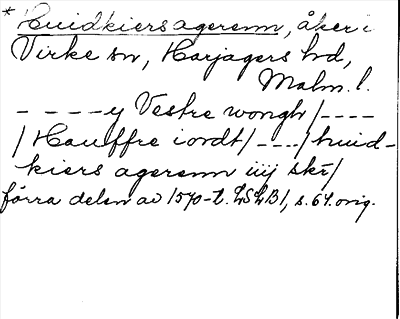 * Huidkiers agerenn, åker i
Virke sn, Harjagers hd,
Malm. l.
- - - - y Vestre wongh / - - - -
/ Hauffre iordt / - - - / huid-
kiers agerenn iiij skr /
förra delen av 1570-t. LSLB1, s. 64. orig.